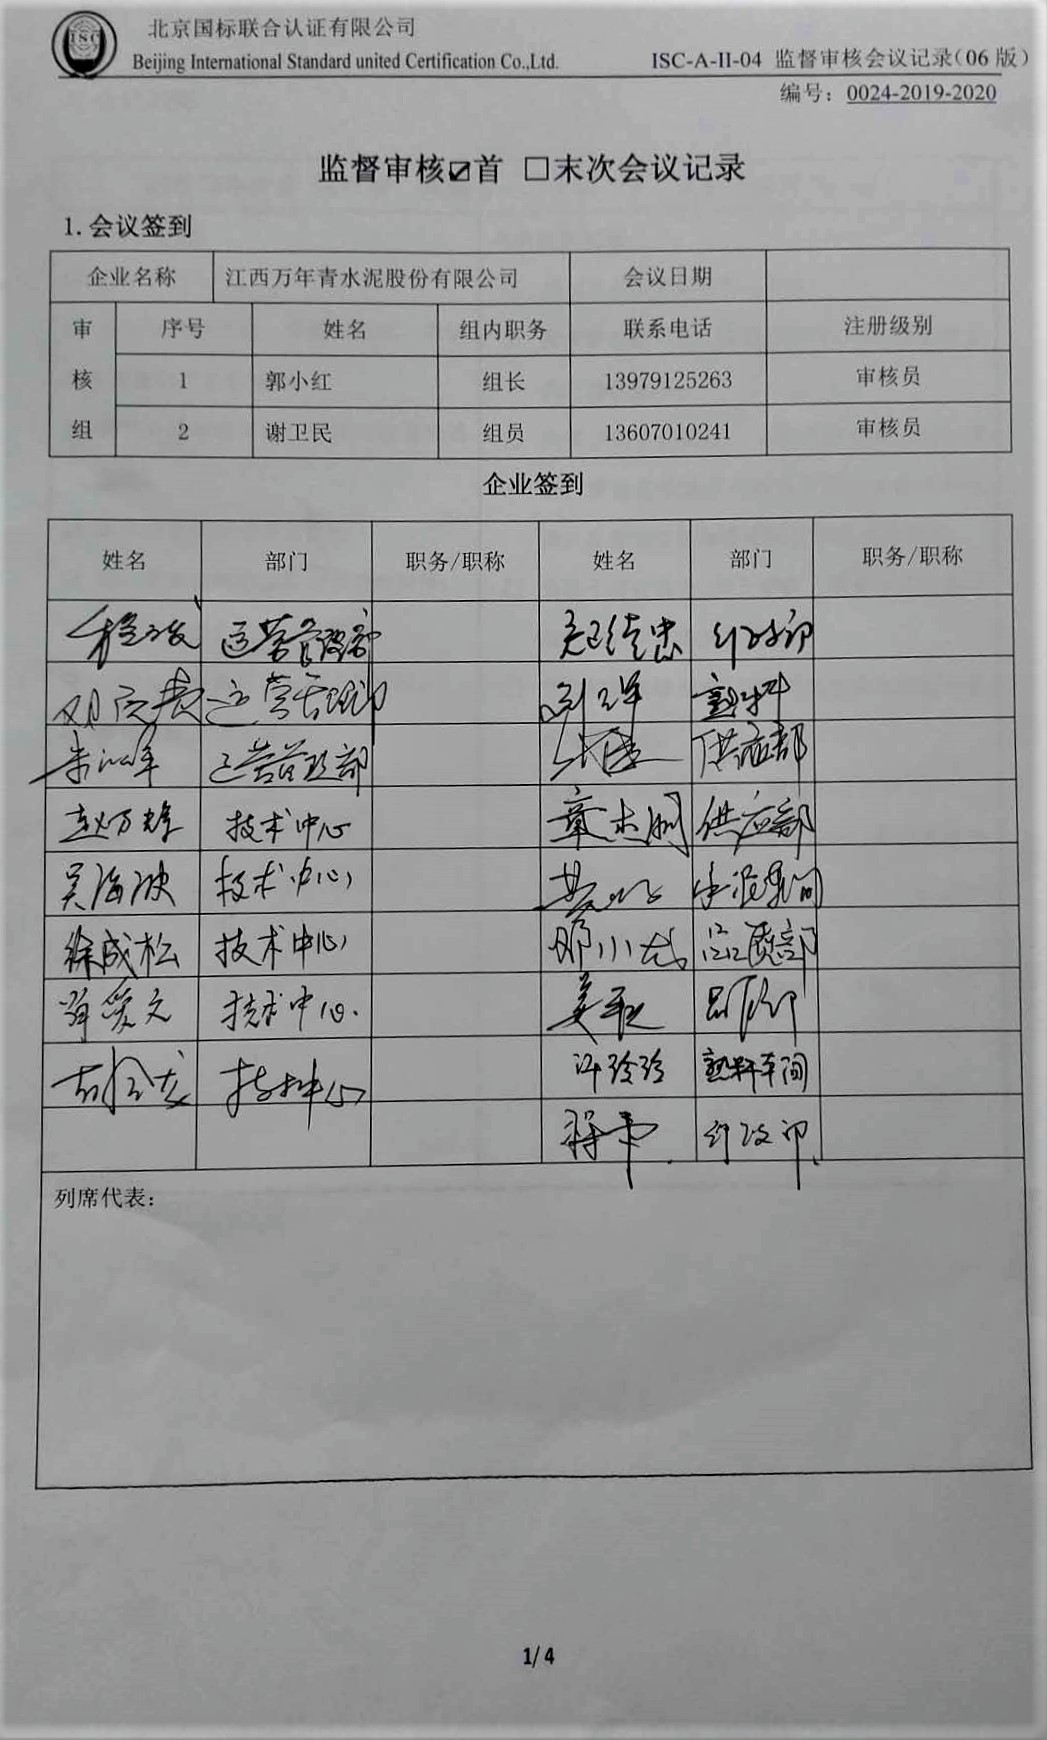 ISC
北京国标联合认证有限公司
Beijing International Standard united Certification Co.,Ltd.
ISC-A-II-04 监督审核会议记录(06 版)
编号：0024-2019-2020
监督审核☑首 □末次会议记录
1.会议签到
企业名称 江西万年青水泥股份有限公司 会议日期
审核组 序号 姓名 组内职务 联系电话 注册级别
1 郭小红 组长 13979125263 审核员
2 谢卫民 组员 13607010241 审核员
企业签到
姓名 部门 职务/职称 姓名 部门 职务/职称
运营管理部 行政部
运营管理部 熟料
运营管理部 供应部
赵万雄 技术中心 供应部
吴海波 技术中心
徐成松 技术中心 邓小龙 品质部
技术中心 品质部
技术中心 许珍珍 熟料车间
行政部
列席代表：
1/4